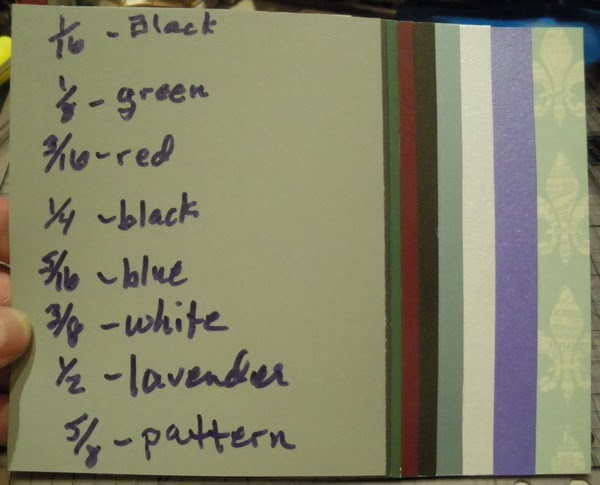 1/16 - Black
1/8 - green
3/16 - red
1/4 - black
5/16 - blue
3/8 - white
1/2 - lavender
5/8 - pattern